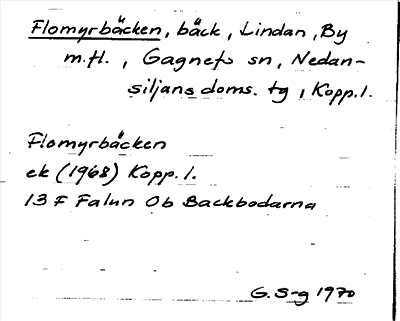 Flomyrbäcken, bäck, Lindan, By
m.fl., Gagnefs sn, Nedan-
siljans doms. tg, Kopp.l.
Flomyrbäcken
ek (1968) Kopp. l.
13 F Falun Ob Backbodarna
G. S-g 1970